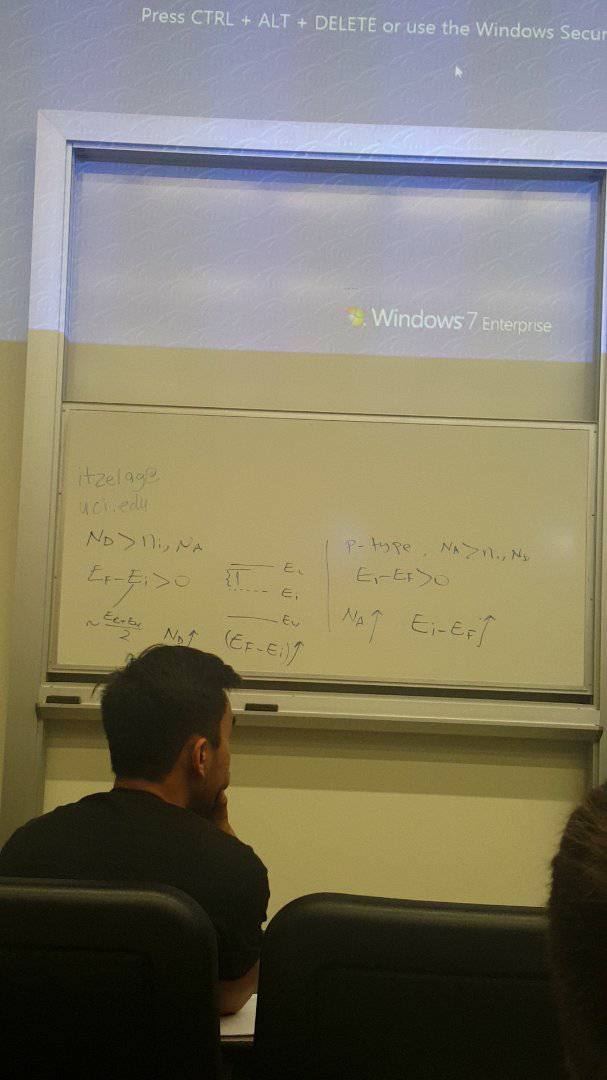 Press CTRL + ALT + DELETE or use the Windows Secur
Windows 7 Enterprise
itzelag@
uci.edu
ND > ni, NA
EF - Ei > 0
~ Ec+Ev/2
ND↑ (EF-Ei)↑
Ec
Ei
Ev
P-type, NA > ni, ND
Ei-EF > 0
NA↑ Ei-EF↑